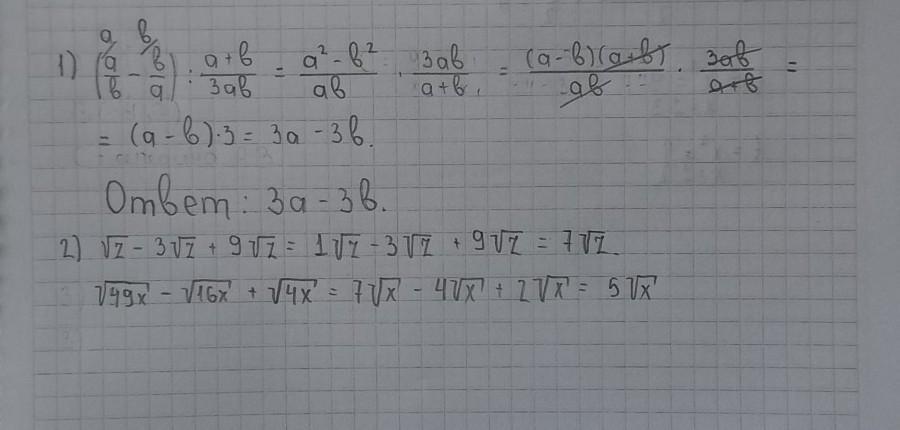 1) (a/b - b/a) : (a+b)/(3ab) = (a² - b²)/(ab) · (3ab)/(a+b) = ((a-b)(a+b))/(ab) · (3ab)/(a+b) =
= (a-b)·3 = 3a - 3b.
Ответ: 3a - 3b.
2) √z - 3√z + 9√z = 1√z - 3√z + 9√z = 7√z.
√49x - √16x + √4x = 7√x - 4√x + 2√x = 5√x